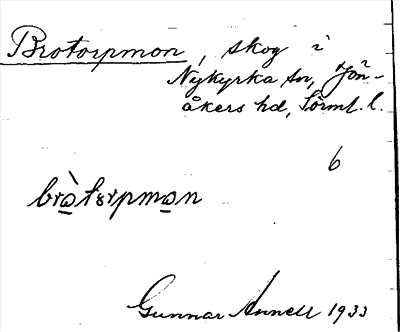 Brotorpmon, skog i
Nykyrka sn, Jön-
åkers hd, Sörml. l.
6
bròtorpmon
Gunnar Annell 1933